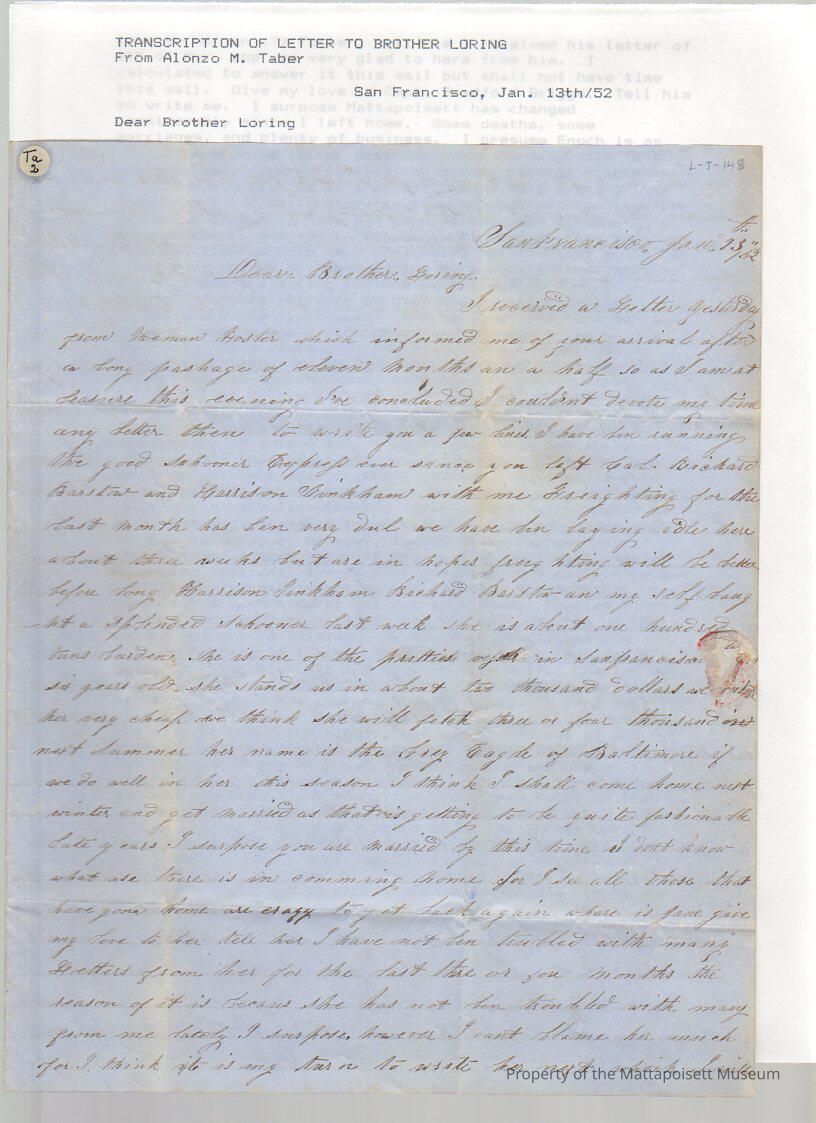 TRANSCRIPTION OF LETTER TO BROTHER LORING
From Alonzo M. Taber
San Francisco, Jan. 13th/52
Dear Brother Loring
Ta
2
L-T-148
SanFrancisco Jan. 13th/52
Dear Brother Loring.
I received a Letter yesterday
from Heman Foster which informed me of your arrival after
a long pashage of eleven months an a half so as I am at
leasure this evening I've concluded I couldint devote my time
any better then to write you a few lines. I have ben running
the good schooner Express ever sence you left Cal. Richard
Barstow and Harrison Tinkham with me Freighting for the
last month has ben very dul we have ben laying idle here
about three weeks but are in hopes freighting will be better
before long Harrison Tinkham Richard Barstow an my self baug
ht a splended schooner last week she is about one hundred
tuns burden, she is one of the pritties in Sanfrancisco
six years old. she stands us in about two thousand dollars we
her very cheap we think she will fetch three or four thousand
next summer her name is the Grey Eagle of Baltimore if
we do well in her this season I think I shall come home next
winter and get married as that is getting to be quite fashionable
late years I surpose you are married by this time I dont know
what use there is in comming home for I se all those that
have gone home are crazy to get back again whare is Jane give
my love to her tell her I have not ben trubled with many
Letters from her for the last thre or fore months the
reason of it is becaus she has not ben troubled with many
from me lately I surpose. however I cant blame her much
for I think it is my turn to write her next which I will
Property of the Mattapoisett Museum